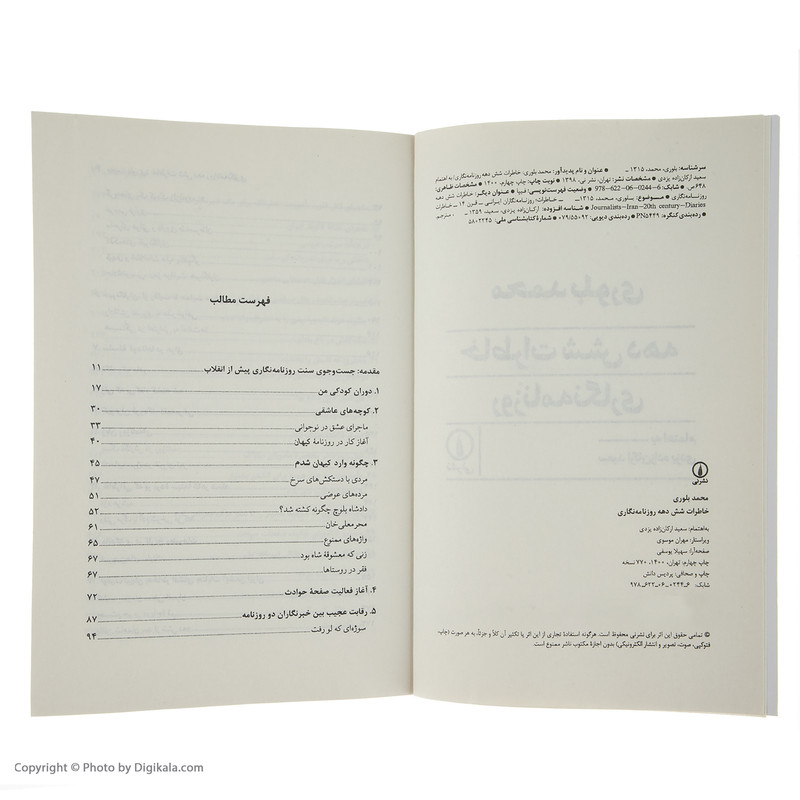 سرشناسه: بلوری، محمد، ۱۳۱۵ – • عنوان و نام پدیدآور: محمد بلوری، خاطرات شش دهه روزنامه‌نگاری/ به اهتمام
سعید ارکان‌زاده یزدی • مشخصات نشر: تهران، نشر نی، ۱۳۹۸ • نوبت چاپ: چاپ چهارم، ۱۴۰۰ • مشخصات ظاهری:
۶۴۸ص. • شابک: 978-622-06-0244-6 • وضعیت فهرست‌نویسی: فیپا • عنوان دیگر: خاطرات شش دهه
روزنامه‌نگاری • موضوع: بلوری، محمد، ۱۳۱۵ – — خاطرات؛ روزنامه‌نگاران ایرانی – قرن ۱۴ – خاطرات
Journalists-Iran-20th century-Diaries • شناسه افزوده: ارکان‌زاده یزدی، سعید، ۱۳۵۹ – ، مترجم
• رده‌بندی کنگره: PN۵۴۴۹ • رده‌بندی دیویی: ۰۷۹/۵۵۰۹۲ • شمارهٔ کتابشناسی ملی: ۵۸۰۲۲۴۵
نشرنی
محمد بلوری
خاطرات شش دهه روزنامه‌نگاری
به‌اهتمام: سعید ارکان‌زاده یزدی
ویراستار: مهران موسوی
صفحه‌آرا: سهیلا یوسفی
چاپ چهارم: تهران، ۱۴۰۰، ۷۷۰ نسخه
چاپ و صحافی: پردیس دانش
شابک: ۶-۰۲۴۴-۰۶-۶۲۲-۹۷۸
© تمامی حقوق این اثر برای نشرنی محفوظ است. هرگونه استفادهٔ تجاری از این اثر یا تکثیر آن کلاً و جزئاً، به هر صورت (چاپ،
فتوکپی، صوت، تصویر و انتشار الکترونیکی) بدون اجازهٔ مکتوب ناشر ممنوع است.
فهرست مطالب
مقدمه: جست‌وجوی سنت روزنامه‌نگاری پیش از انقلاب ۱۱
۱. دوران کودکی من ۱۷
۲. کوچه‌های عاشقی ۳۰
ماجرای عشق در نوجوانی ۳۳
آغاز کار در روزنامهٔ کیهان ۴۰
۳. چگونه وارد کیهان شدم ۴۵
مردی با دستکش‌های سرخ ۴۷
مرده‌های عوضی ۵۱
دادشاه بلوچ چگونه کشته شد؟ ۵۲
محرمعلی‌خان ۶۱
واژه‌های ممنوع ۶۵
زنی که معشوقهٔ شاه بود ۶۷
فقر در روستاها ۶۷
۴. آغاز فعالیت صفحهٔ حوادث ۷۲
۵. رقابت عجیب بین خبرنگاران دو روزنامه ۸۷
سوژه‌ای که لو رفت ۹۴
Copyright © Photo by Digikala.com